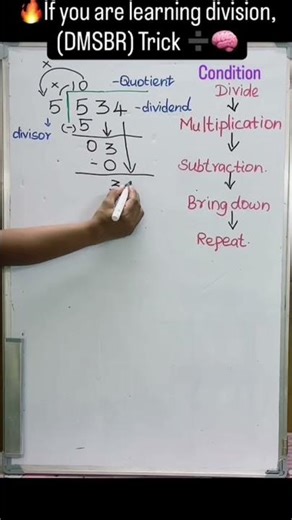 🔥If you are learning division,
(DMSBR) Trick ➗🧠
x
x 10 -Quotient
5 534 -dividend
divisor (-)5
03
-0
3
Condition
Divide
Multiplication
Subtraction.
Bring down
Repeat.